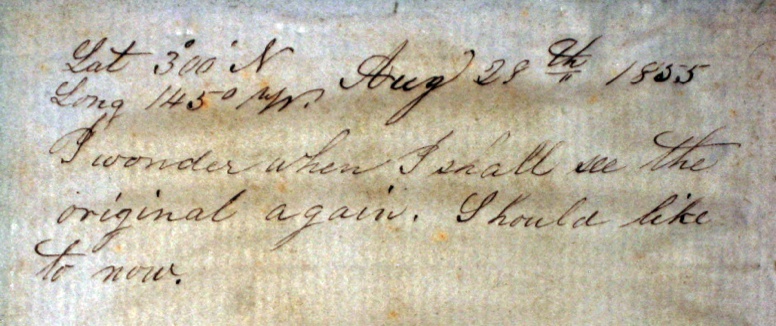 Lat 3°00' N Aug 28th 1855
Long 145° W.
I wonder when I shall see the
original again. Should like
to now.